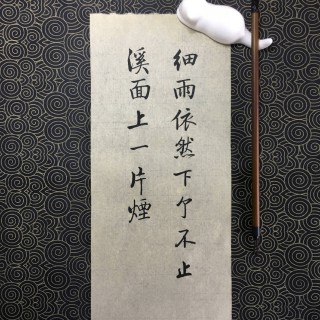 细雨依然下个不止
溪面上一片煙